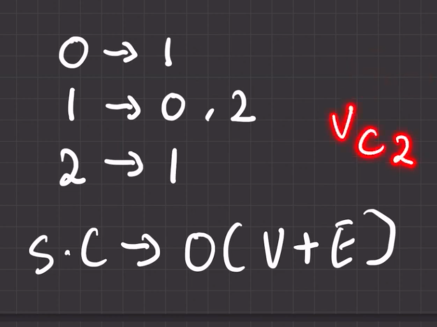 0 → 1
1 → 0, 2
2 → 1
VC2
S.C → O(V+E)